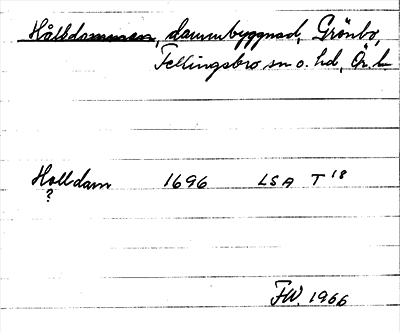 Hålldammen, dammbyggnad, Grönbo,
Fellingsbro sn o. hd, Ör. l.
Holldam 1696 LSA T 18
?
FW. 1966